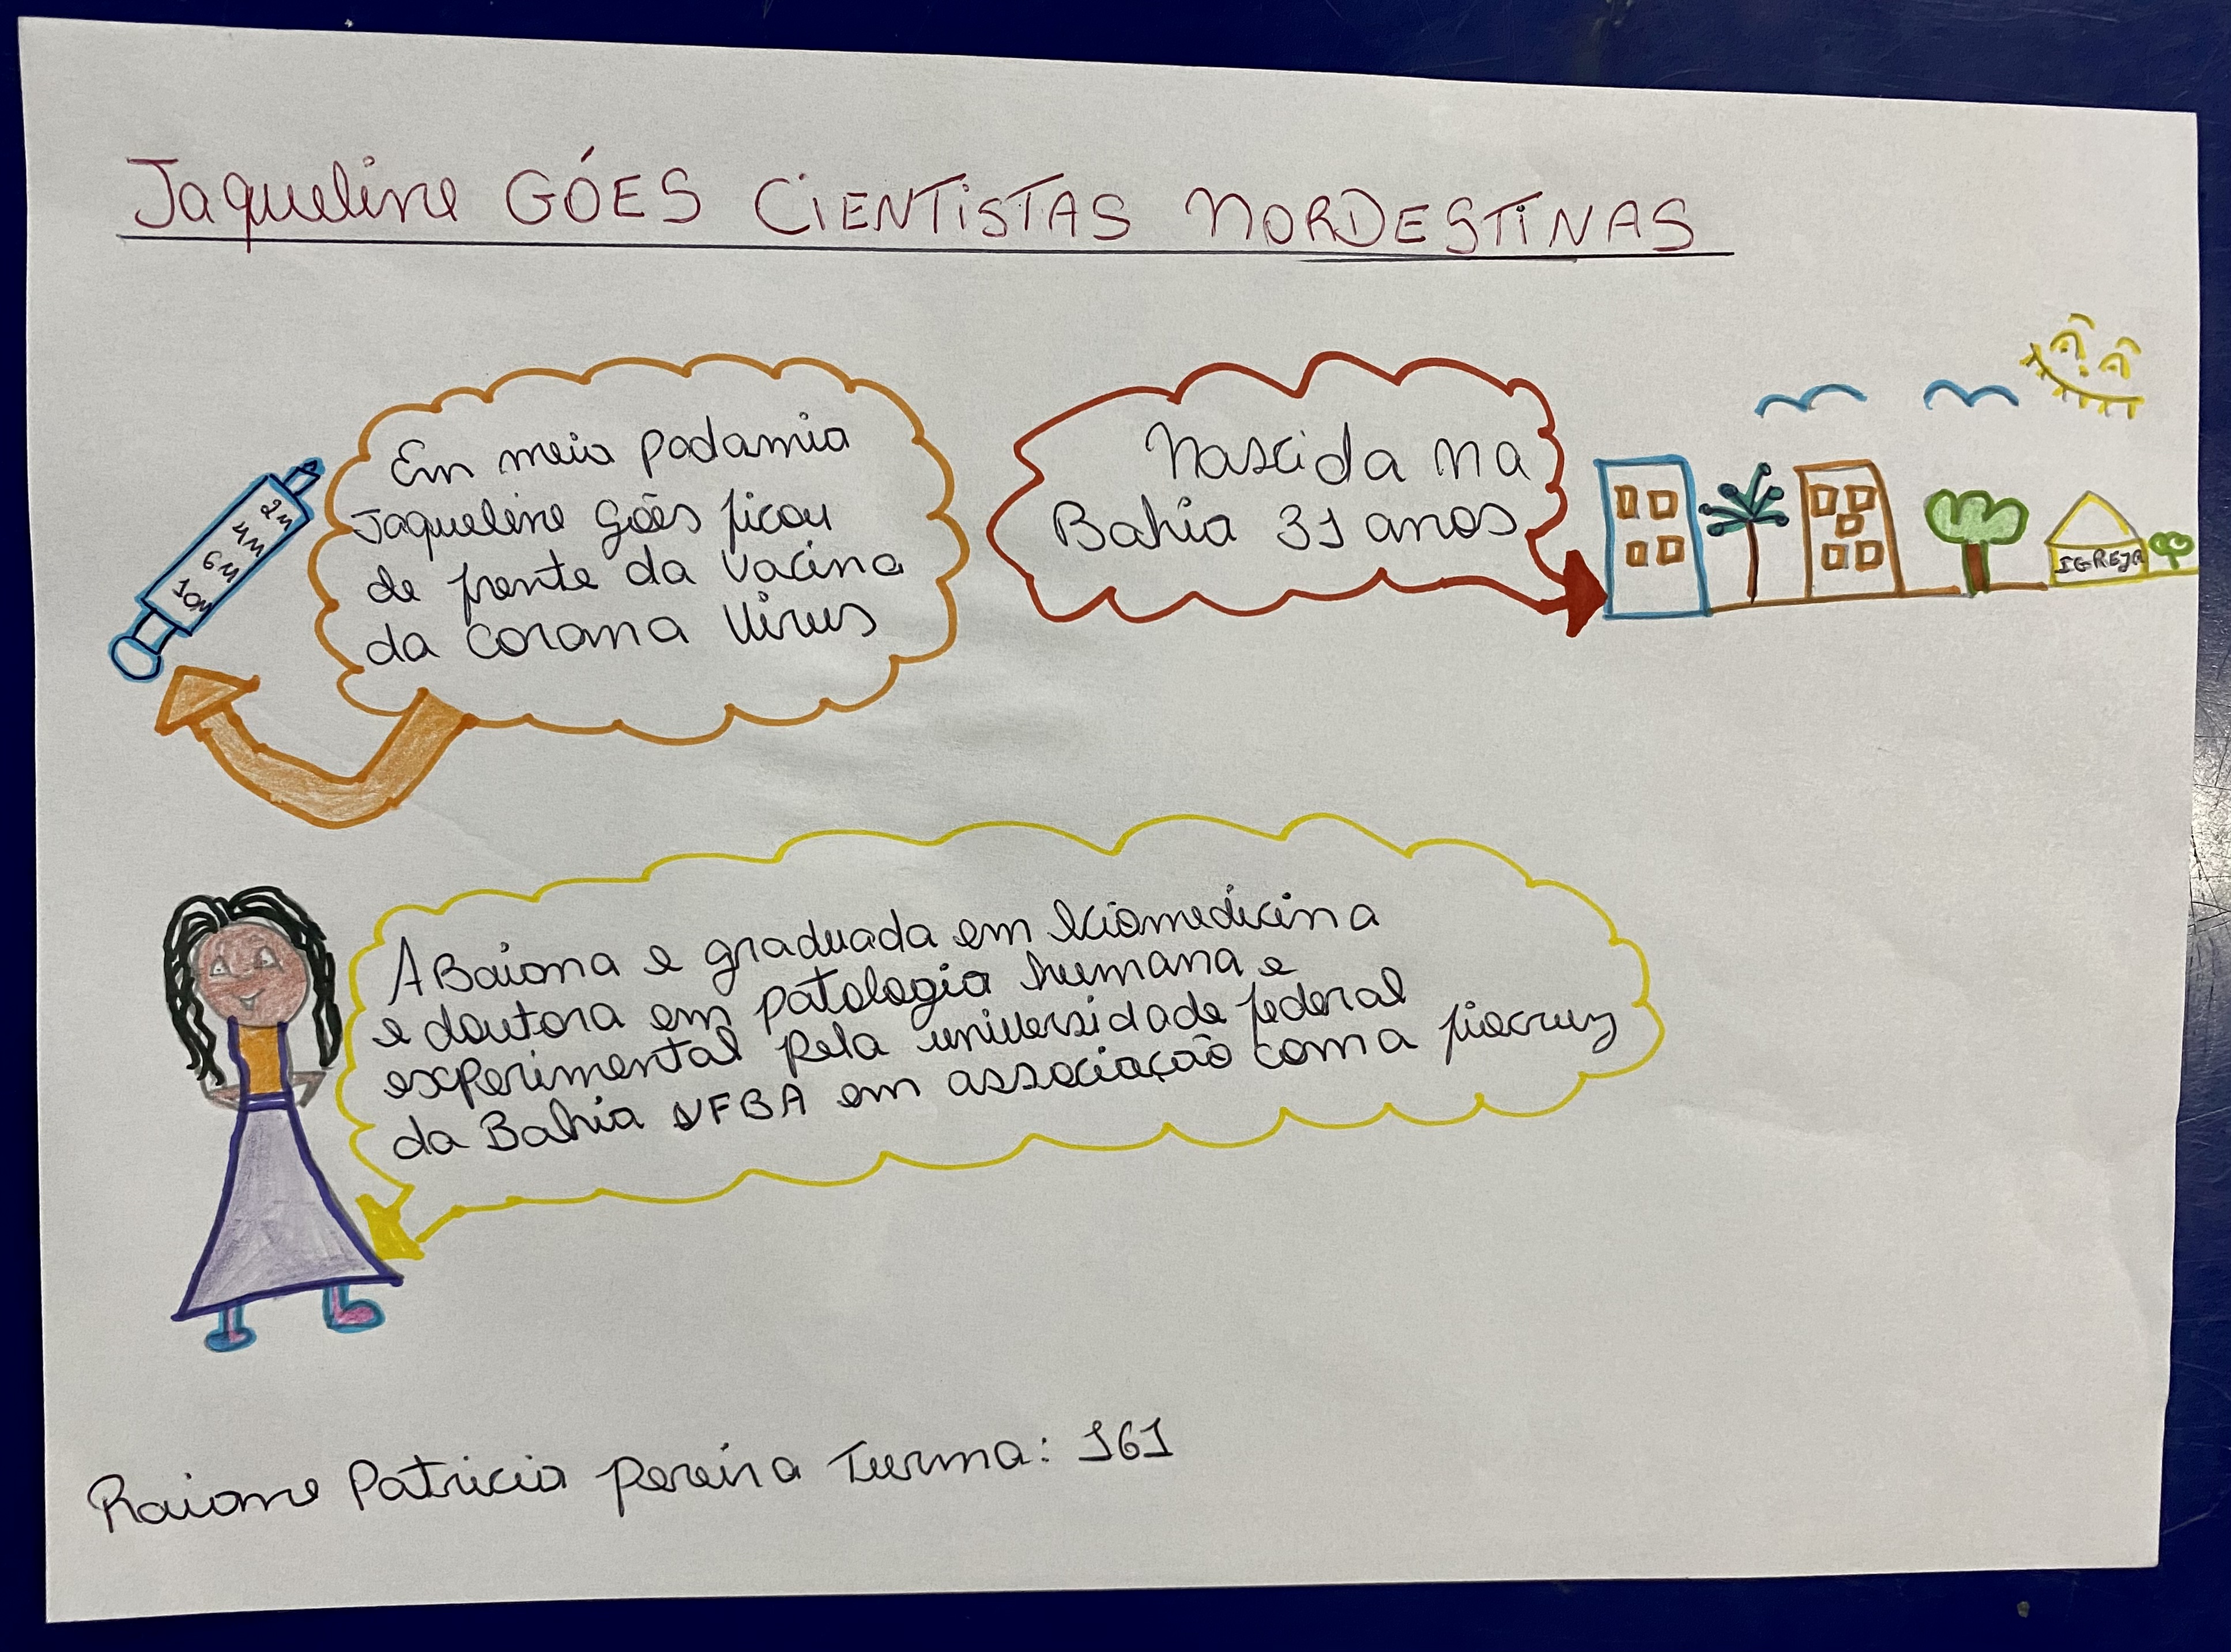 Jaqueline GÓES CiENTiSTAS NORDESTiNAS
Em meio padamia
Jaqueline Góes ficou
de frente da Vacina
da corona Virus
Nascida na
Bahia 31 anos
2M
4M
6M
10M
IGREJA
A Baiana e graduada em biomedicina
e doutora em patologia humana e
experimental pela universidade federal
da Bahia UFBA em associação com a fiocruz
Raiane Patricia pereira Turma: 161